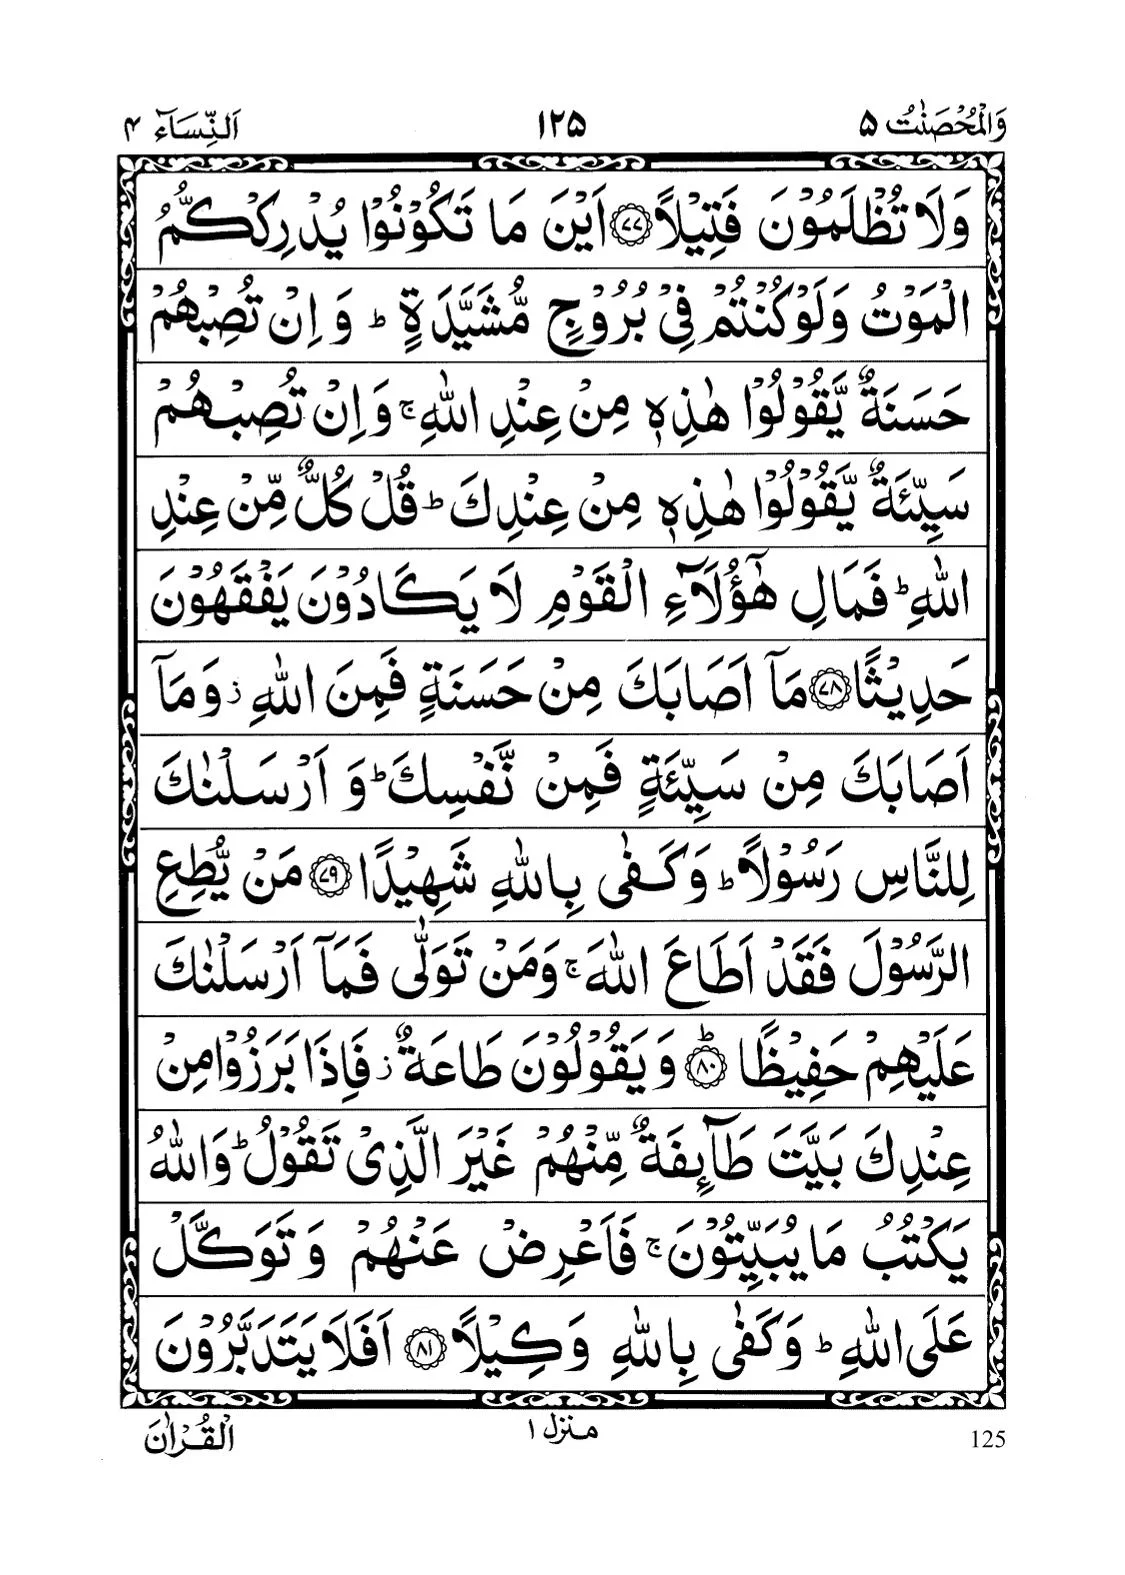 وَالْمُحْصَنٰتُ ۵
۱۲۵
اَلنِّسَآء ۴
وَلَا تُظْلَمُوْنَ فَتِيْلًا ۷۷ اَيْنَ مَا تَكُوْنُوْا يُدْرِكْكُّمُ
الْمَوْتُ وَلَوْ كُنْتُمْ فِيْ بُرُوْجٍ مُّشَيَّدَةٍ ؕ وَ اِنْ تُصِبْهُمْ
حَسَنَةٌ يَّقُوْلُوْا هٰذِهٖ مِنْ عِنْدِ اللّٰهِ ۚ وَاِنْ تُصِبْهُمْ
سَيِّئَةٌ يَّقُوْلُوْا هٰذِهٖ مِنْ عِنْدِكَ ؕ قُلْ كُلٌّ مِّنْ عِنْدِ
اللّٰهِ ؕ فَمَالِ هٰٓؤُلَآءِ الْقَوْمِ لَا يَكَادُوْنَ يَفْقَهُوْنَ
حَدِيْثًا ۷۸ مَآ اَصَابَكَ مِنْ حَسَنَةٍ فَمِنَ اللّٰهِ ز وَمَآ
اَصَابَكَ مِنْ سَيِّئَةٍ فَمِنْ نَّفْسِكَ ؕ وَ اَرْسَلْنٰكَ
لِلنَّاسِ رَسُوْلًا ؕ وَكَفٰى بِاللّٰهِ شَهِيْدًا ۷۹ مَنْ يُّطِعِ
الرَّسُوْلَ فَقَدْ اَطَاعَ اللّٰهَ ۚ وَمَنْ تَوَلّٰى فَمَآ اَرْسَلْنٰكَ
عَلَيْهِمْ حَفِيْظًا ؕ ۸۰ وَيَقُوْلُوْنَ طَاعَةٌ ز فَاِذَا بَرَزُوْا مِنْ
عِنْدِكَ بَيَّتَ طَآئِفَةٌ مِّنْهُمْ غَيْرَ الَّذِيْ تَقُوْلُ ؕ وَاللّٰهُ
يَكْتُبُ مَا يُبَيِّتُوْنَ ۚ فَاَعْرِضْ عَنْهُمْ وَتَوَكَّلْ
عَلَى اللّٰهِ ؕ وَكَفٰى بِاللّٰهِ وَكِيْلًا ۸۱ اَفَلَا يَتَدَبَّرُوْنَ
125
منزل ۱
الْقُرْاٰنَ